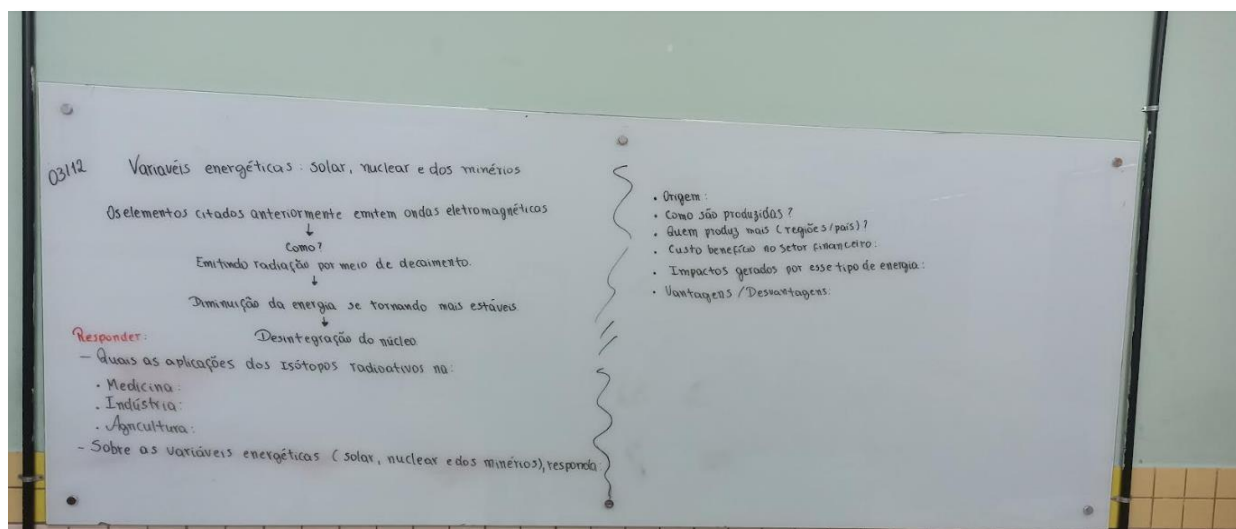 03/12 Variavéis energéticas: solar, nuclear e dos minérios
Os elementos citados anteriormente emitem ondas eletromagnéticas
↓
Como?
Emitindo radiação por meio de decaimento.
↓
Diminuição da energia se tornando mais estáveis
↓
Desintegração do núcleo
Responder:
- Quais as aplicações dos Isótopos radioativos na:
• Medicina:
• Indústria:
• Agricultura:
- Sobre as variáveis energéticas (solar, nuclear e dos minérios), responda
• Origem:
• Como são produzidas?
• Quem produz mais (regiões/país)?
• Custo benefício no setor financeiro:
• Impactos gerados por esse tipo de energia:
• Vantagens / Desvantagens: